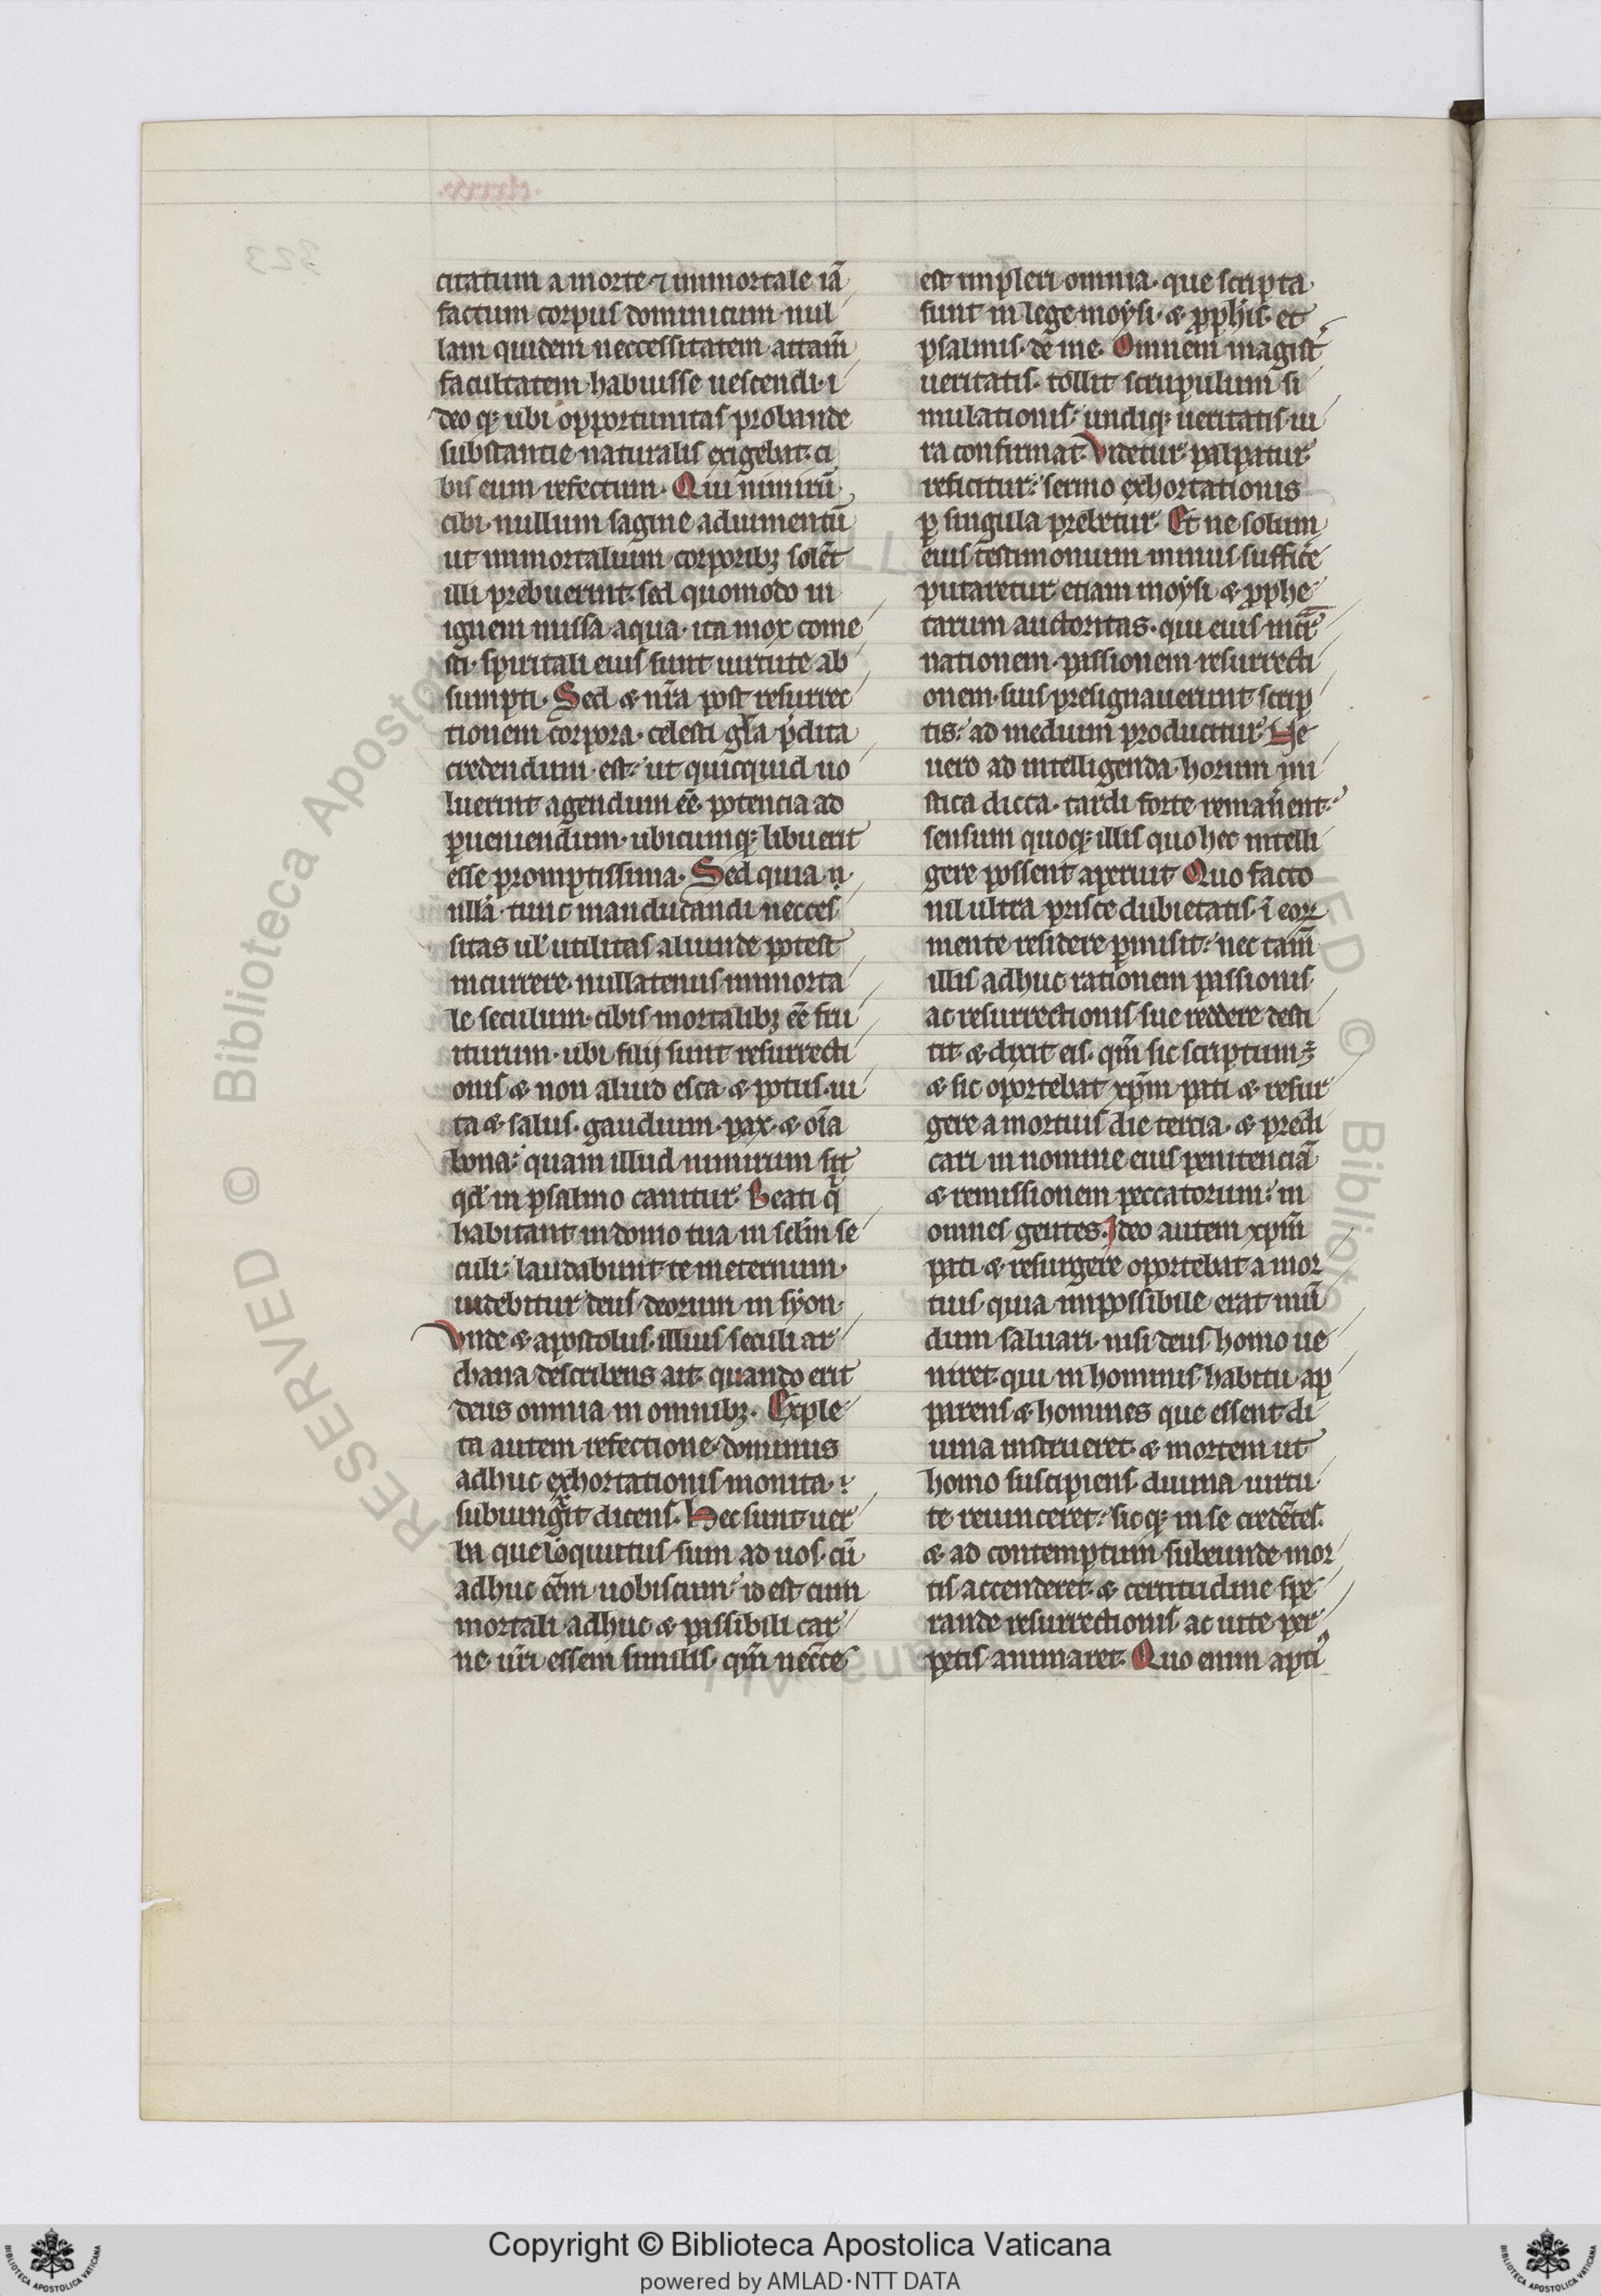 citatum a morte ⁊ immortale iã
factum corpus dominicum nul
lam quidem neccessitatem attam̃
facultatem habuisse uescendi· i
deo qꝫ ubi opportunitas probande
substantie naturalis exigebat· ci
bis eum refectum· Qui nimirũ
cibi· nullum sagine adiumentũ
ut immortalium corporibꝫ solet
illi prebuerint· sed quomodo in
ignem missa aqua· ita mox come
sti· spiritali eius sunt uirtute ab
sumpti· Sed & nr̃a post resurrec
tionem corpora· celesti gl̃a p̃dita
credendum est· ut quicquid uo
luerint agendum eẽ· potencia ad
ꝑueniendum· ubicumqꝫ libuerit
esse promptissima· Sed quia n
ulla· tunc manducandi necces
sitas ul̃ utilitas aliunde potest
incurrere· nullatenus immorta
le seculum· cibis mortalibꝫ eẽ fru
iturum· ubi filij sunt resurrecti
onis & non aliud esca & potus· ui
ta & salus· gaudium· pax· & oĩa
bona· quam illud nimirum sit
qd̃ in psalmo canitur· Beati q̃
habitant in domo tua in scl̃m se
culi· laudabunt te ineternum·
uidebitur deus deorum in syon·
Vnde & apostolus· illius seculi ar
chana describens ait· quando erit
deus omnia in omnibꝫ· Exple
ta autem refectione· dominus
adhuc exhortationis monita·
subiungit dicens· Hec sunt uer
ba que loquutus sum ad uos· cũ
adhuc eẽm uobiscum· id est cum
mortali adhuc & passibili car
ne ur̃i essem similis· qm̃ necc̃e
est impleri omnia· que scripta
sunt in lege moysi· & ꝓphis· et
psalmis· de me· Omnem magist
ueritatis· tollit scrupulum si
mulationis· undiqꝫ ueritatis iu
ra confirmat· Videtur· palpatur
reficitur· sermo exhortationis
ꝑ singula prebetur· Et ne solum
eius testimonium minus sufficẽ
putaretur etiam moysi & ꝓphe
tarum auctoritas· qui eius incar
nationem· passionem resurrecti
onem· suis presignauerunt scrip
tis· ad medium producitur· Ne
uero ad intelligenda· horum mi
stica dicta· tardi forte remanent·
sensum quoqꝫ illis quo hec intelli
gere possent aperuit· Quo facto
nil ultra prisce dubietatis· ĩ eoꝝ
mente residere ꝑmisit· nec tam̃
illis adhuc rationem passionis
ac resurrectionis sue reddere desti
tit· & dixit eis· qm̃ sic scriptum ÷
& sic oportebat xp̃m pati & resur
gere a mortuis die tercia· & predi
cari in nomine eius penitenciã
& remissionem peccatorum· in
omnes gentes· Ideo autem xp̃m
pati & resurgere oportebat a mor
tuis quia impossibile erat mũ
dum saluari· nisi deus homo ue
niret· qui in hominis habitu ap
parens & homines que essent di
uina instrueret· & mortem ut
homo suscipiens diuina uirtu
te reuinceret· sicqꝫ in se credẽtes·
& ad contemptum subeunde mor
tis accenderet· & certitudine spe
rande resurrectionis ac uite per
petis animaret· Quo enim apti
Copyright © Biblioteca Apostolica Vaticana
powered by AMLAD·NTT DATA
BIBLIOTECA APOSTOLICA VATICANA
BIBLIOTECA APOSTOLICA VATICANA